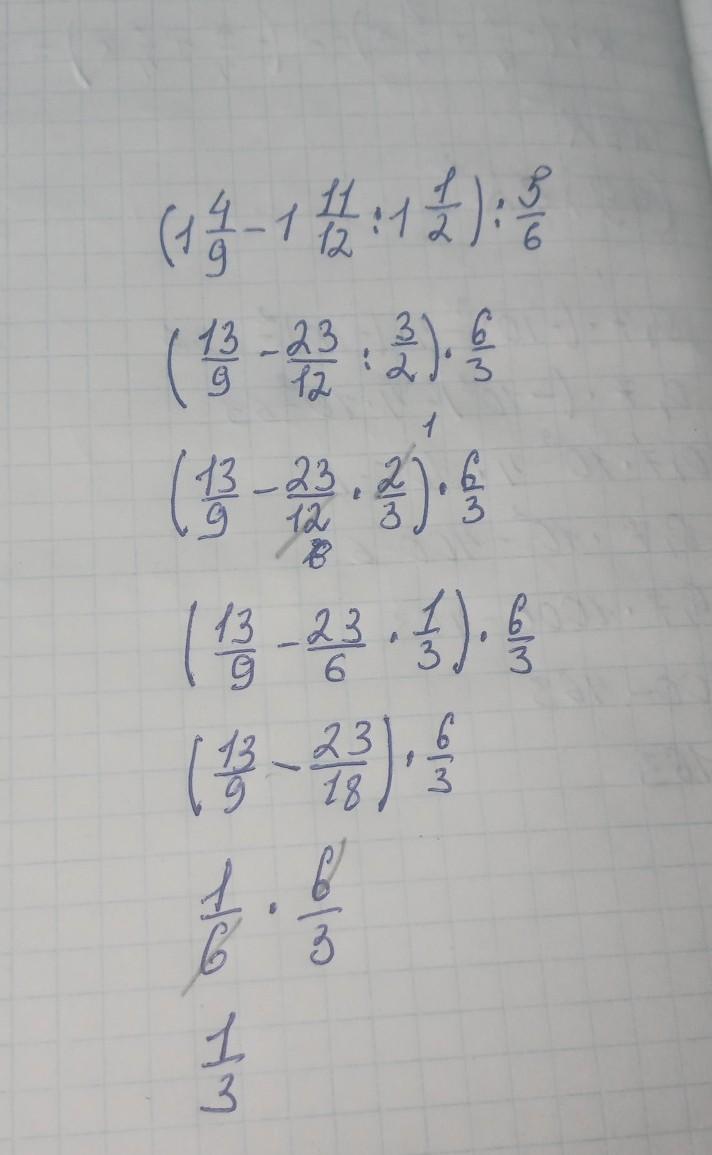 (1 4/9 - 1 11/12 : 1 1/2) : 3/6
(13/9 - 23/12 : 3/2) · 6/3
1
(13/9 - 23/12 · 2/3) · 6/3
6
(13/9 - 23/6 · 1/3) · 6/3
(13/9 - 23/18) · 6/3
1/6 · 6/3
1/3